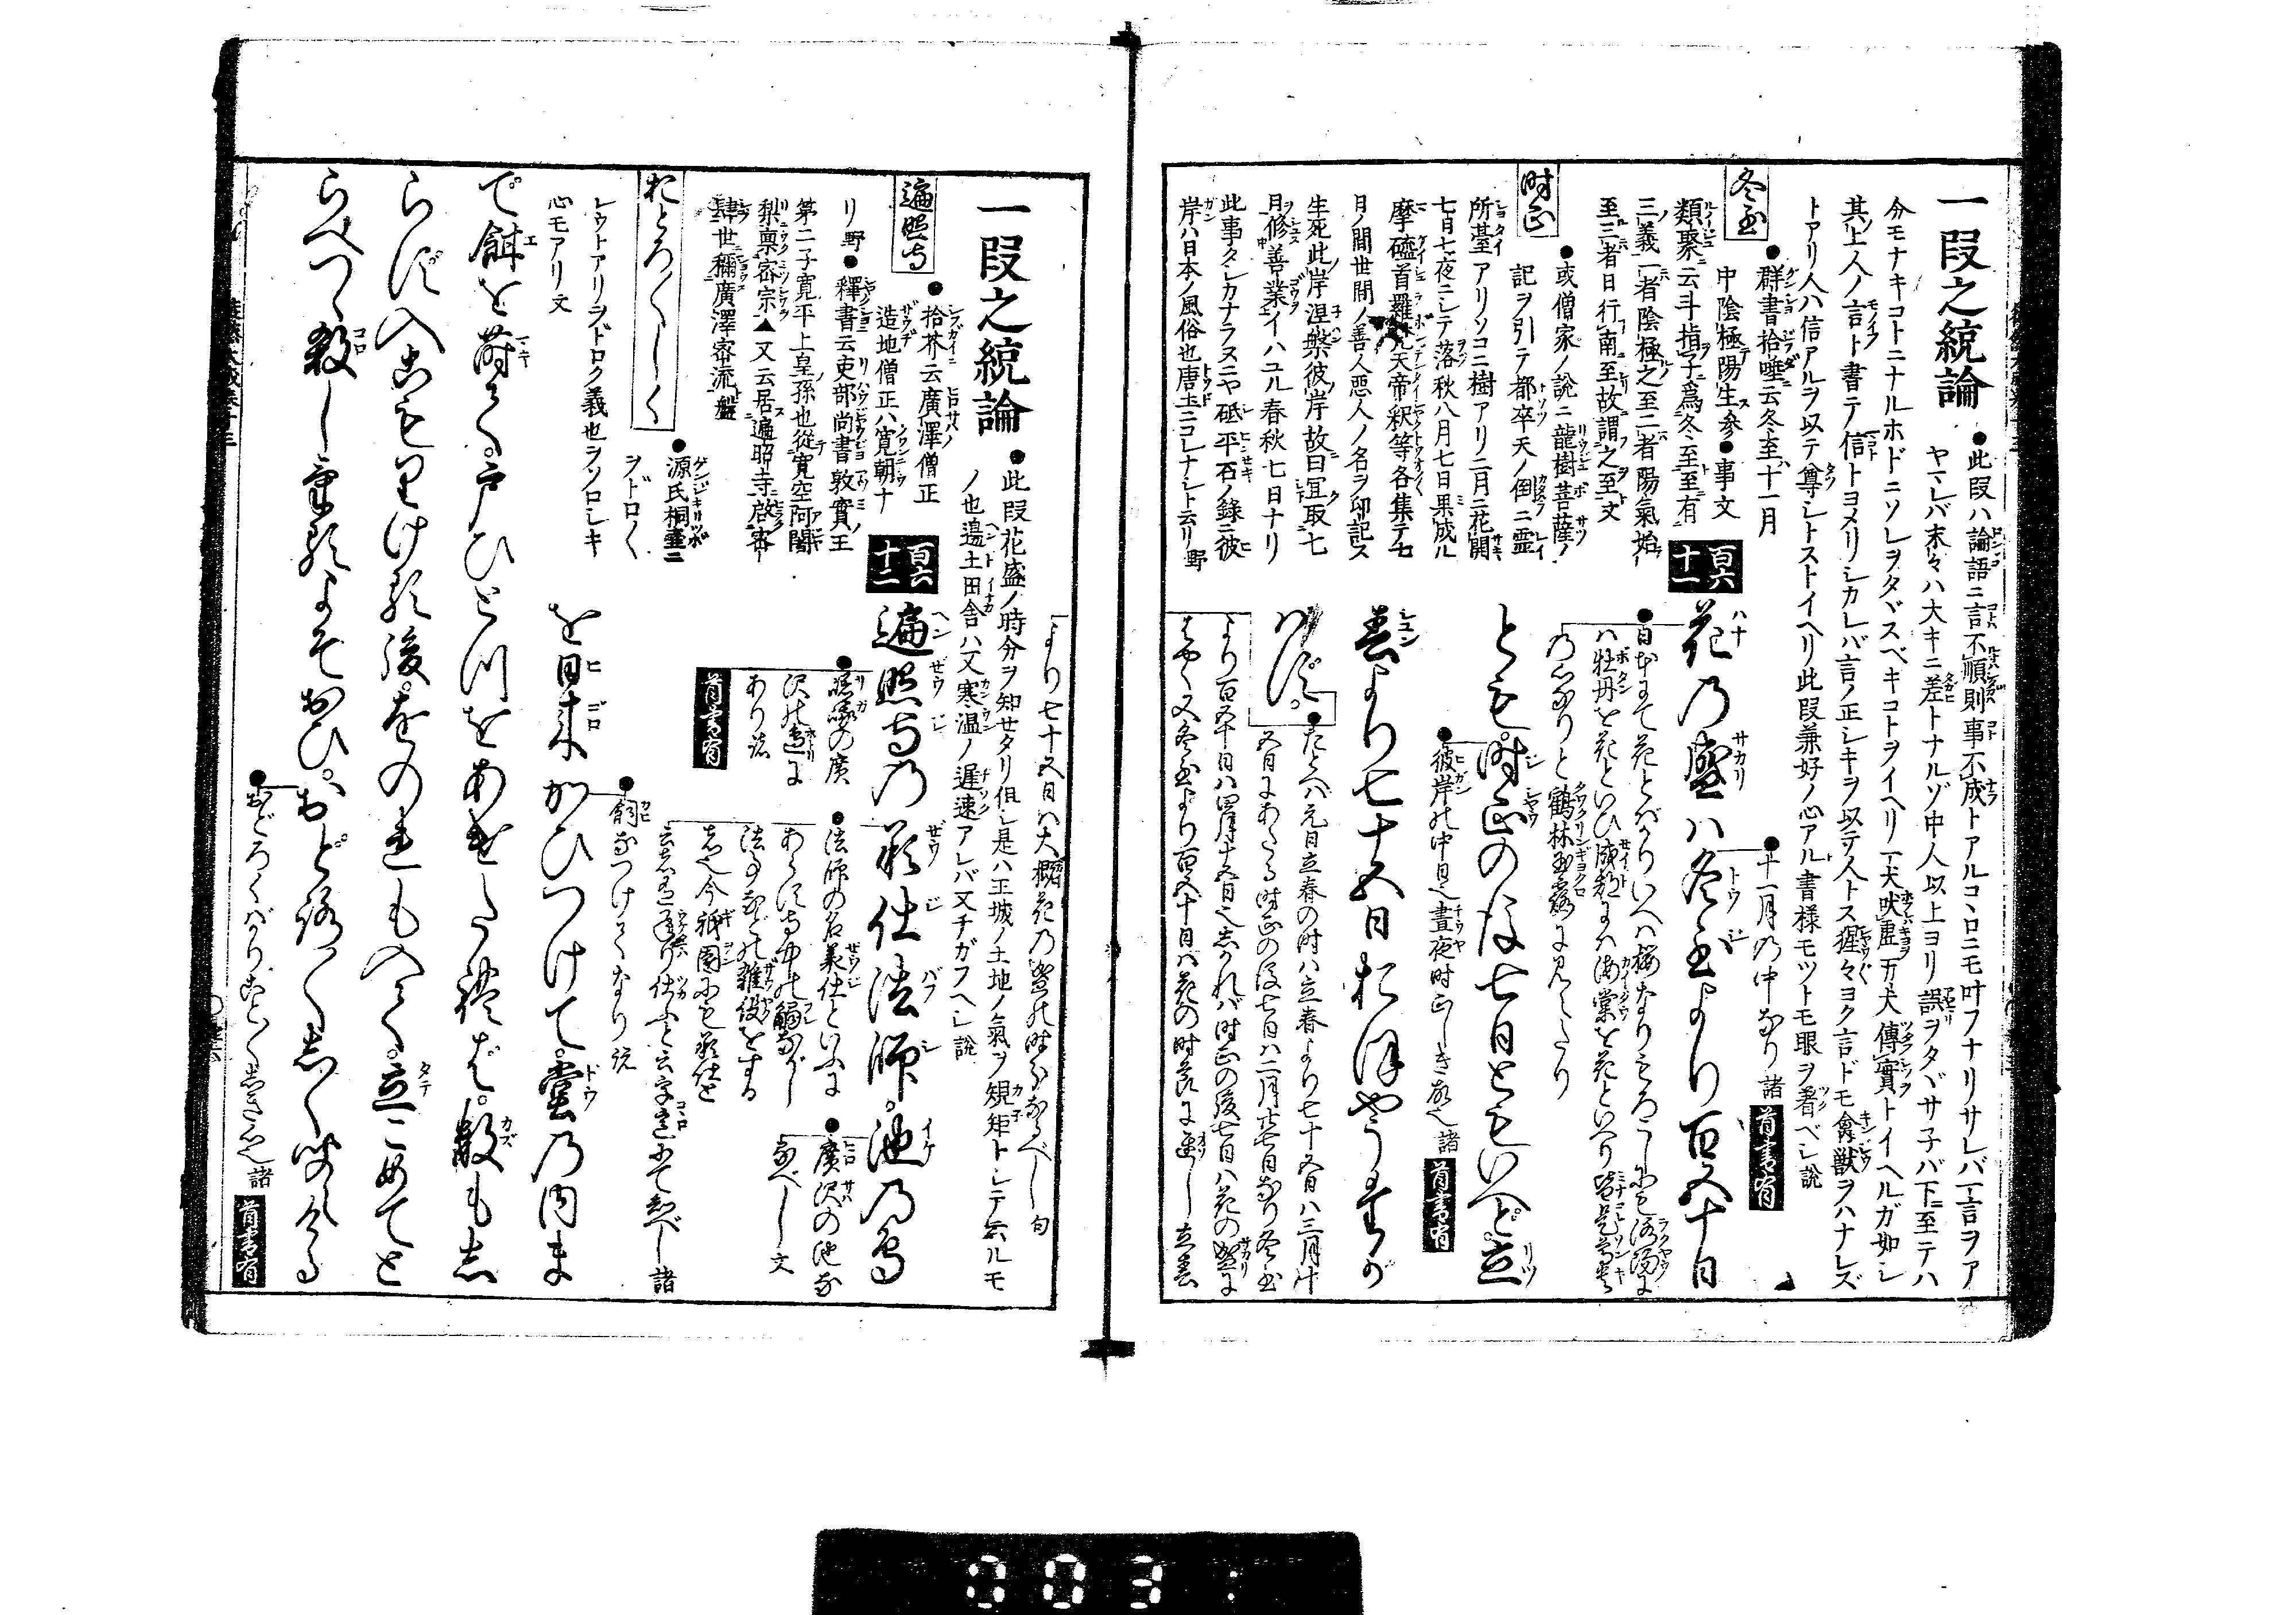 一段之統論
●此段ハ論語ニ言不順則事不成トアルコヽロニモ叶フナリサレバ一言ヲア
ヤマレバ末々ハ大キニ差トナルゾ中人以上ヨリ誤ヲタヾサ子バ下ニ至テハ
今モナキコトニナルホドニソレヲタヾスベキコトヲイヘリ一犬吠虚万犬傳實トイヘルガ如シ
其上人ノ言ト書テ信トヨメリシカレバ言ノ正シキヲ以テ人トス猩々ヨク言ドモ禽獣ヲハナレズ
トアリ人ハ信アルヲ以テ尊シトストイヘリ此段兼好ノ心アル書様モツトモ眼ヲ着ベシ説
冬至
●群書拾唾云冬至十一月
中陰極陽生参●事文
類聚云斗指子為冬至至有
三義一者陰極之至二者陽氣始
至三者日行南至故謂之至文
時正
●或僧家ノ説ニ龍樹菩薩ノ
記ヲ引テ都卒天ノ倒ニ霊
所臺アリソコニ樹アリ二月ニ花開
七日七夜ニシテ落秋八月七日果成ル
摩醯首羅梵天帝釈等各集テ七
日ノ間世間ノ善人悪人ノ名ヲ印記ス
生死此岸涅槃彼岸故曰宜取二七
日修善業イハユル春秋七日ナリ
此事タシカナラヌニヤ砥平石ノ録ニ彼
岸ハ日本ノ風俗也唐土ニコレナシト云リ野
百六十一
花の盛ハ冬至より百五十日
●十一月の中なり諸 首書有
●日本にて花とばかりいへハ桜なりもろこしにも洛陽に
ハ牡丹を花といひ成都にハ海棠を花といへり
の心なりと鶴林玉露に見えたり
とも。時正の後七日ともいへど。立
●彼岸の中日也昼夜時正しき故也諸 首書有
春より七十五日おほやうたが
ハず。
●たとへバ元日立春の時ハ立春より七十五日ハ三月廿
五日にあたる時正の後七日ハ二月廿七日なり冬至
より百五十日ハ四月十五日也しかれバ時正の後七日ハ花の盛に
はやく又冬至より百五十日バ花の時節に遅し立春
より七十五日ハ大概花の盛の時分なるべし句
一段之統論
●此段花盛ノ時分ヲ知セタリ但シ是ハ王城ノ土地ノ氣ヲ規矩トシテ云ルモ
ノ也邉土田舎ハ又寒温ノ遅速アレバ又チガフヘシ説
遍照寺
●拾芥云廣澤僧正
造地僧正ハ寛朝ナ
リ野●釋書云吏部尚書敦實王
第二子寛平上皇孫也從寛空阿闍
梨稟密宗▲又云居遍昭寺啓密
肆世稱廣澤密流盤
おとろ〳〵しく
●源氏桐壷ニ
ヲドロ〳〵
シウトアリヲドロク義也ヲソロシキ
心モアリ文
百六十二
遍照寺の承仕法師。池の鳥
●嵯峨の廣
沢の邊に
あり諸
首書有
●法師の名承仕といふに
あらず寺中の觸ながし
法事などの雑役をする
者也今祇園にも承仕と
●廣沢の池な
るべし文
を日来かひつけて。堂の内ま
●飼なつけたるなり説
で餌を蒔て。戸ひとつをあけたれバ。数もし
らず入こもりける後。をのれも入て。立こめてと
らへつゝ殺しけるよそおひ。おどろ〳〵しく聞えける
●おどろくばかりこと〴〵しき心也諸 首書有
0031